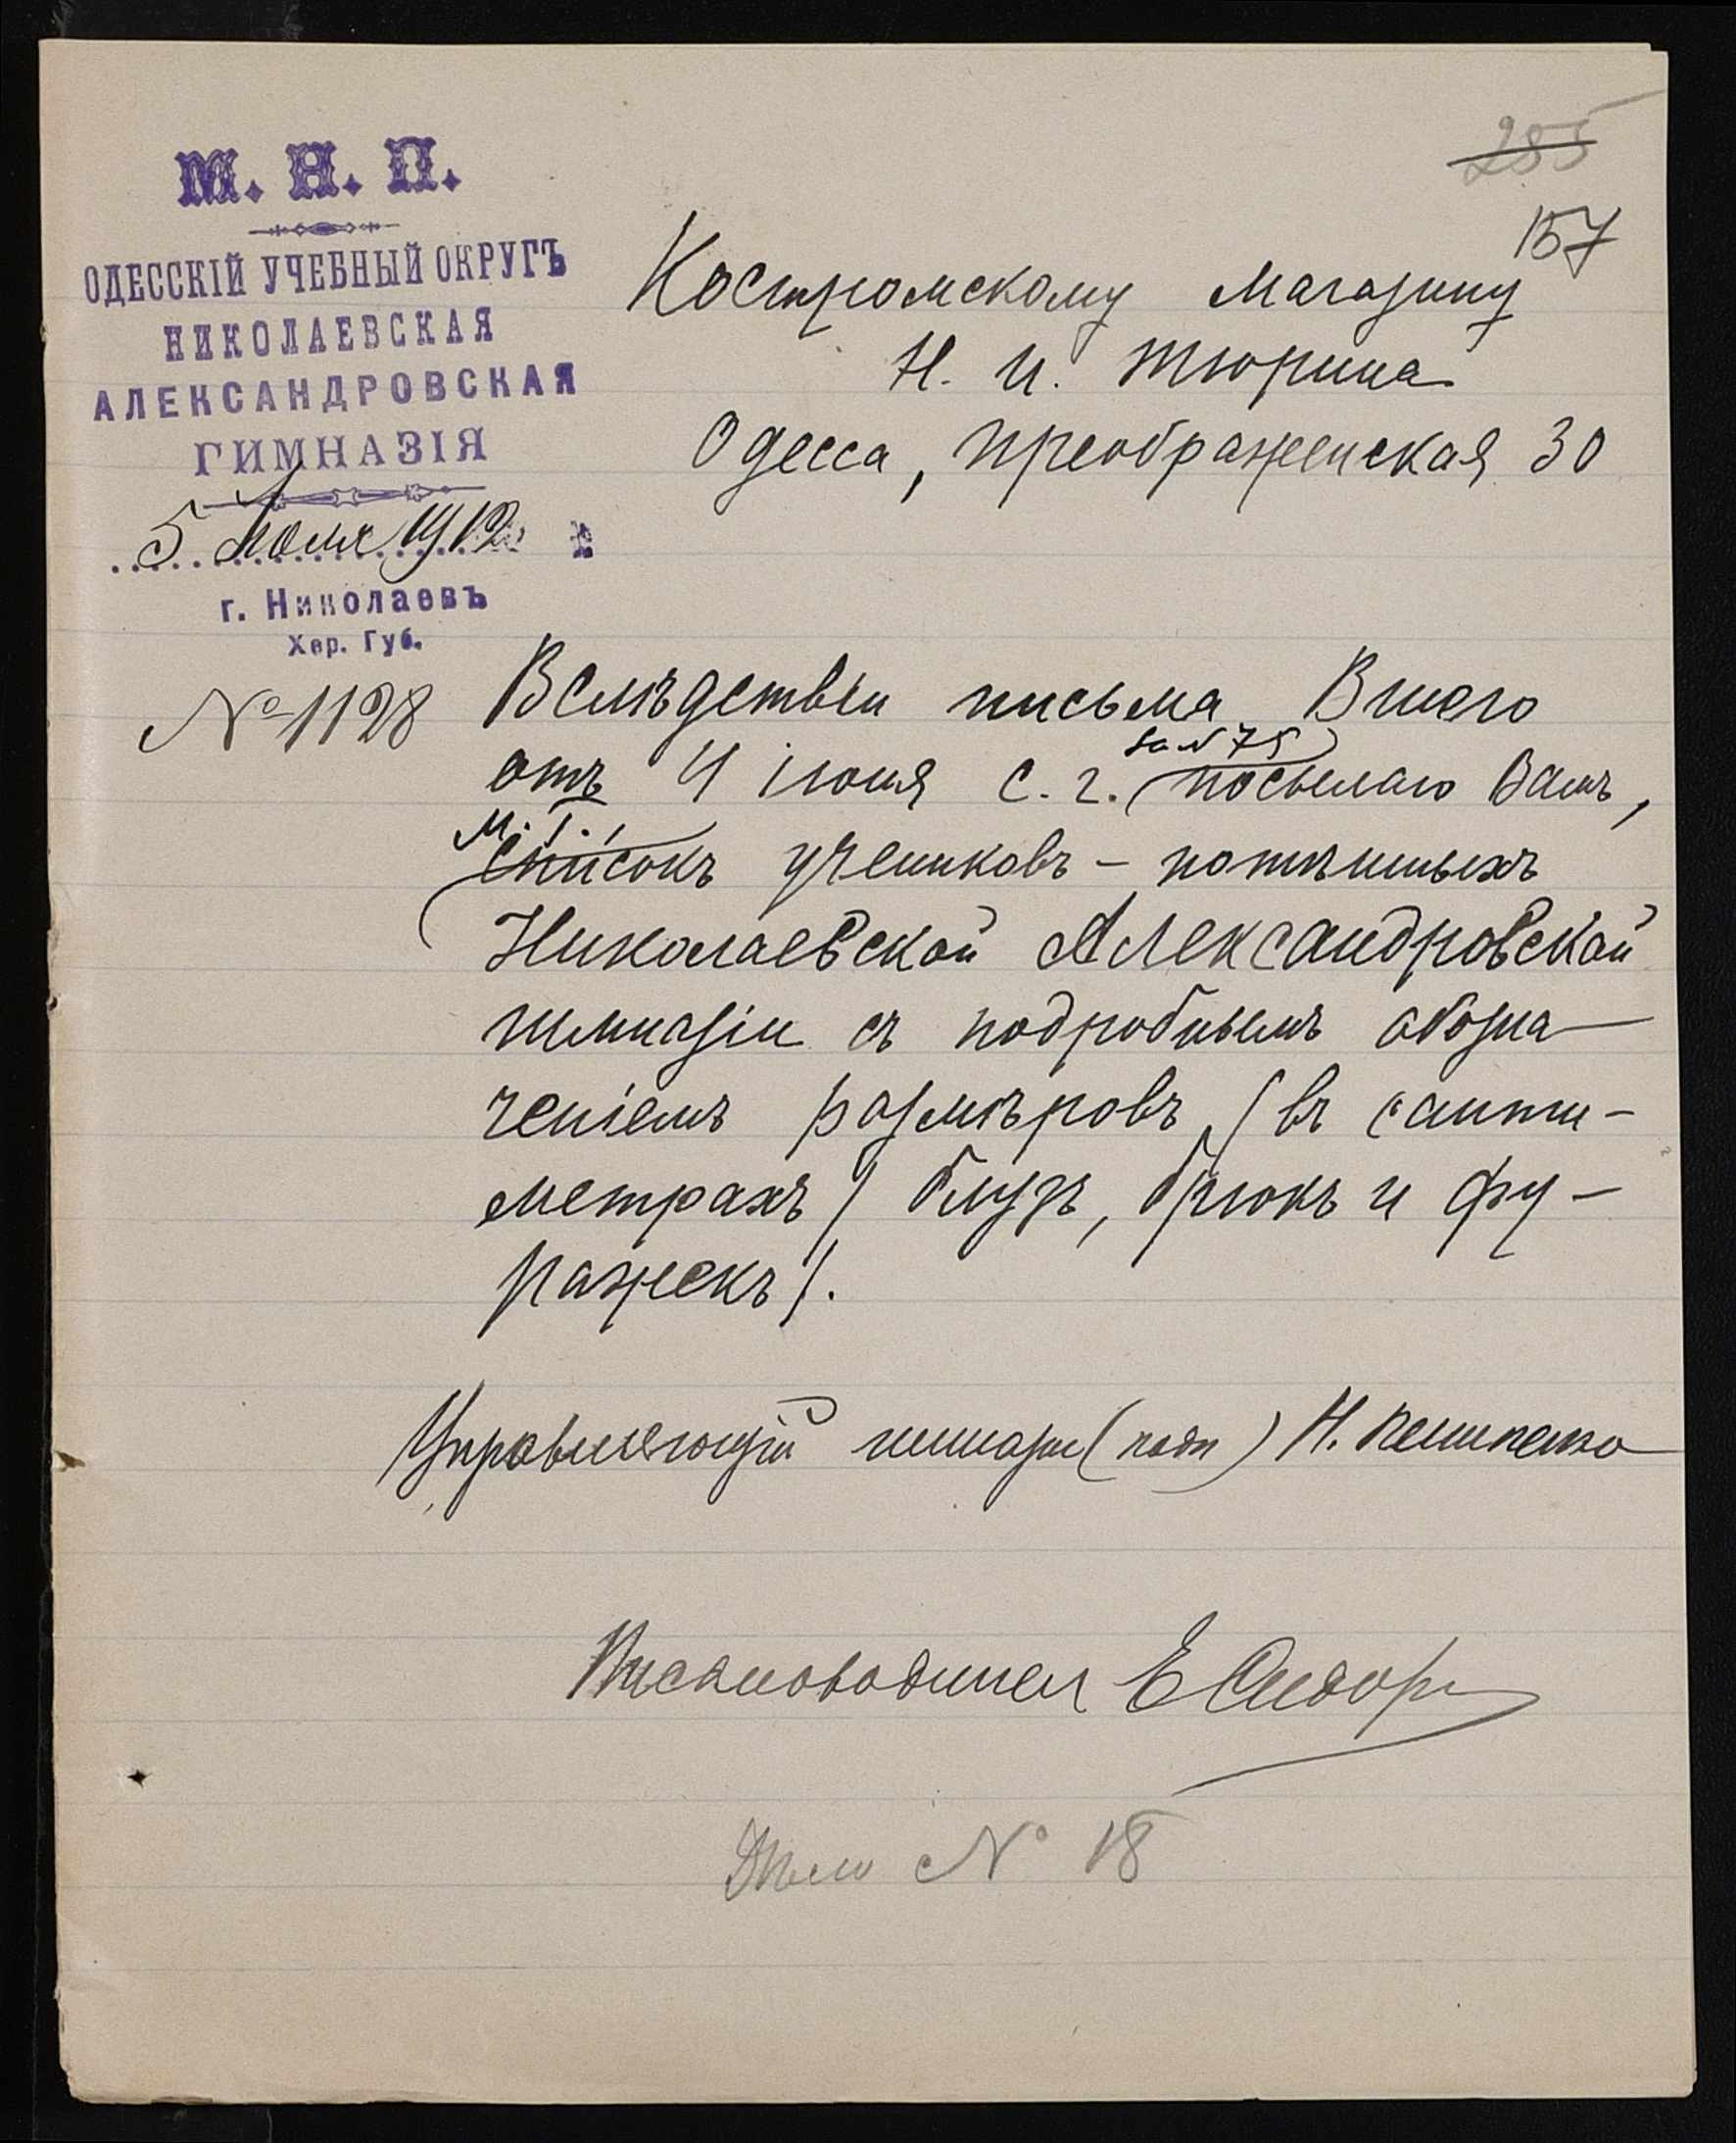 285
157
М. Н. П.
ОДЕССКІЙ УЧЕБНЫЙ ОКРУГЪ
НИКОЛАЕВСКАЯ
АЛЕКСАНДРОВСКАЯ
ГИМНАЗІЯ
5 1912
г. Николаевъ
Хер. Губ.
№ 1128
Костромскому магазину
Н. И. Тюрина
Одесса, Преображенская 30
Вслѣдствіи письма Вшего
за N 75
отъ 4 іюня с. г. посылаю Вамъ,
М. Г.,
списокъ учениковъ – потѣшныхъ
Николаевской Александровской
гимназіи съ подробнымъ обозна-
ченіемъ размѣровъ (въ санти-
метрахъ) блузъ, брюкъ и фу-
ражекъ).
Управляющій гимназіи (подп)
Письмоводитель Е Сидор
Дѣло № 18